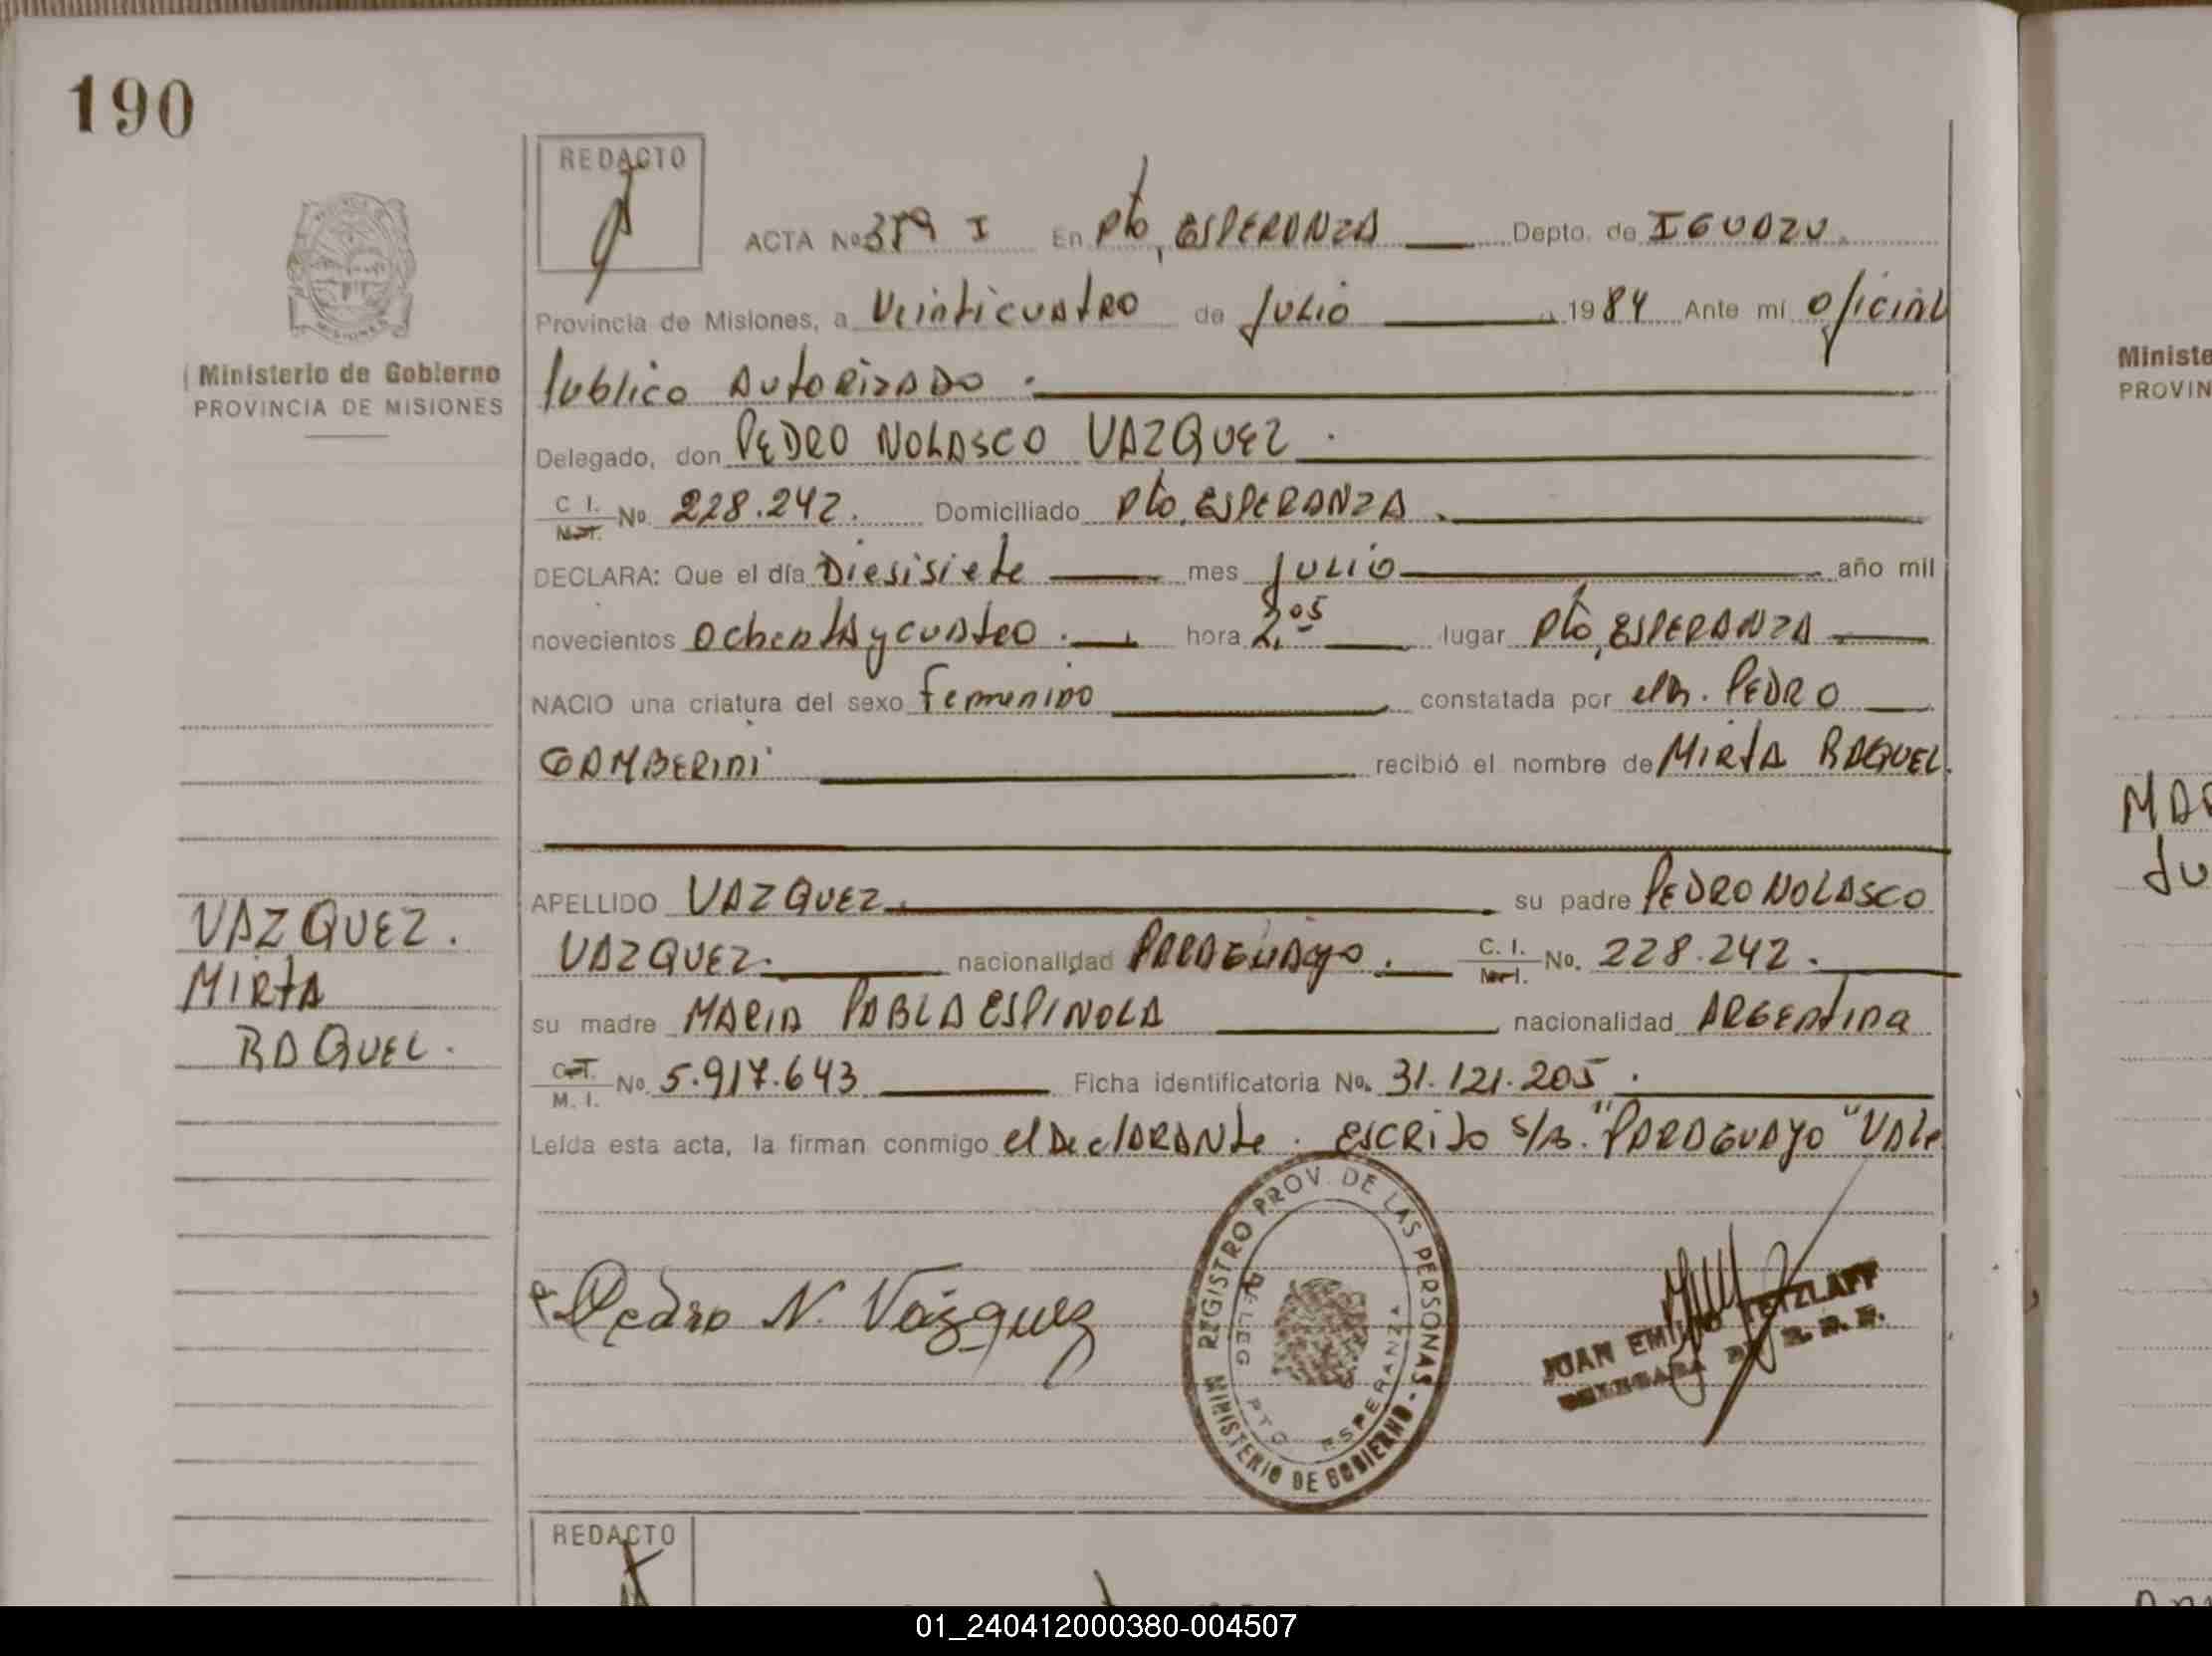 190
REDACTO
ACTA Nº 379 I En Pto, ESPERANZA Depto. de IGUAZU.
Provincia de Misiones, a Veinticuatro de Julio 1984 Ante mí Oficial
Ministerio de Gobierno
PROVINCIA DE MISIONES
Publico Autorizado.
Delegado, don PEDRO NOLASCO VAZQUEZ.
C. I. No. 228.242. Domiciliado Pto, ESPERANZA.
DECLARA: Que el día Diesisiete mes Julio año mil
novecientos Ochenta y cuatro. hora 2,05 lugar Pto, ESPERANZA
NACIO una criatura del sexo femenino constatada por PEDRO
GAMBERINI recibió el nombre de MIRTA RAQUEL.
APELLIDO VAZQUEZ. su padre PEDRO NOLASCO
VAZQUEZ. nacionalidad PARAGUAYO. C. I. No. 228.242.
su madre MARIA PABLA ESPINOLA nacionalidad ARGENTINA
M. I. No. 5.917.643 Ficha identificatoria No. 31.121.205.
Leída esta acta, la firman conmigo el DeclARANte. ESCRITO S/B. "PARAGUAYO" VALE
VAZQUEZ.
MIRTA
RAQUEL.
Pedro N. Vázquez
REGISTRO PROV. DE LAS PERSONAS - MINISTERIO DE GOBIERNO
DELEG PTO ESPERANZA
JUAN EMILIO TETZLAFF
REDACTO
Ministe
PROVIN
MAR
Ju
01_240412000380-004507